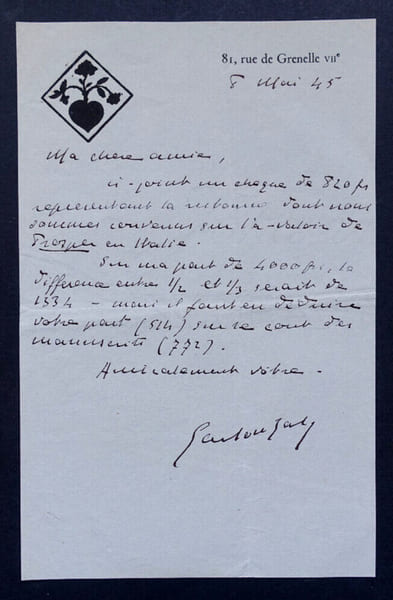 81, rue de Grenelle VIIe
8 Mai 45
Ma chère amie,
ci-joint un chèque de 820 frs
représentant la ristourne dont nous
sommes convenus sur l'à-valoir de
Prosper en Italie.
Sur ma part de 4000 frs, la
différence entre 1/2 et 1/3 serait de
1334 – mais il faut en déduire
votre part (514) sur le cout des
manuscrits (772).
Amicalement vôtre.